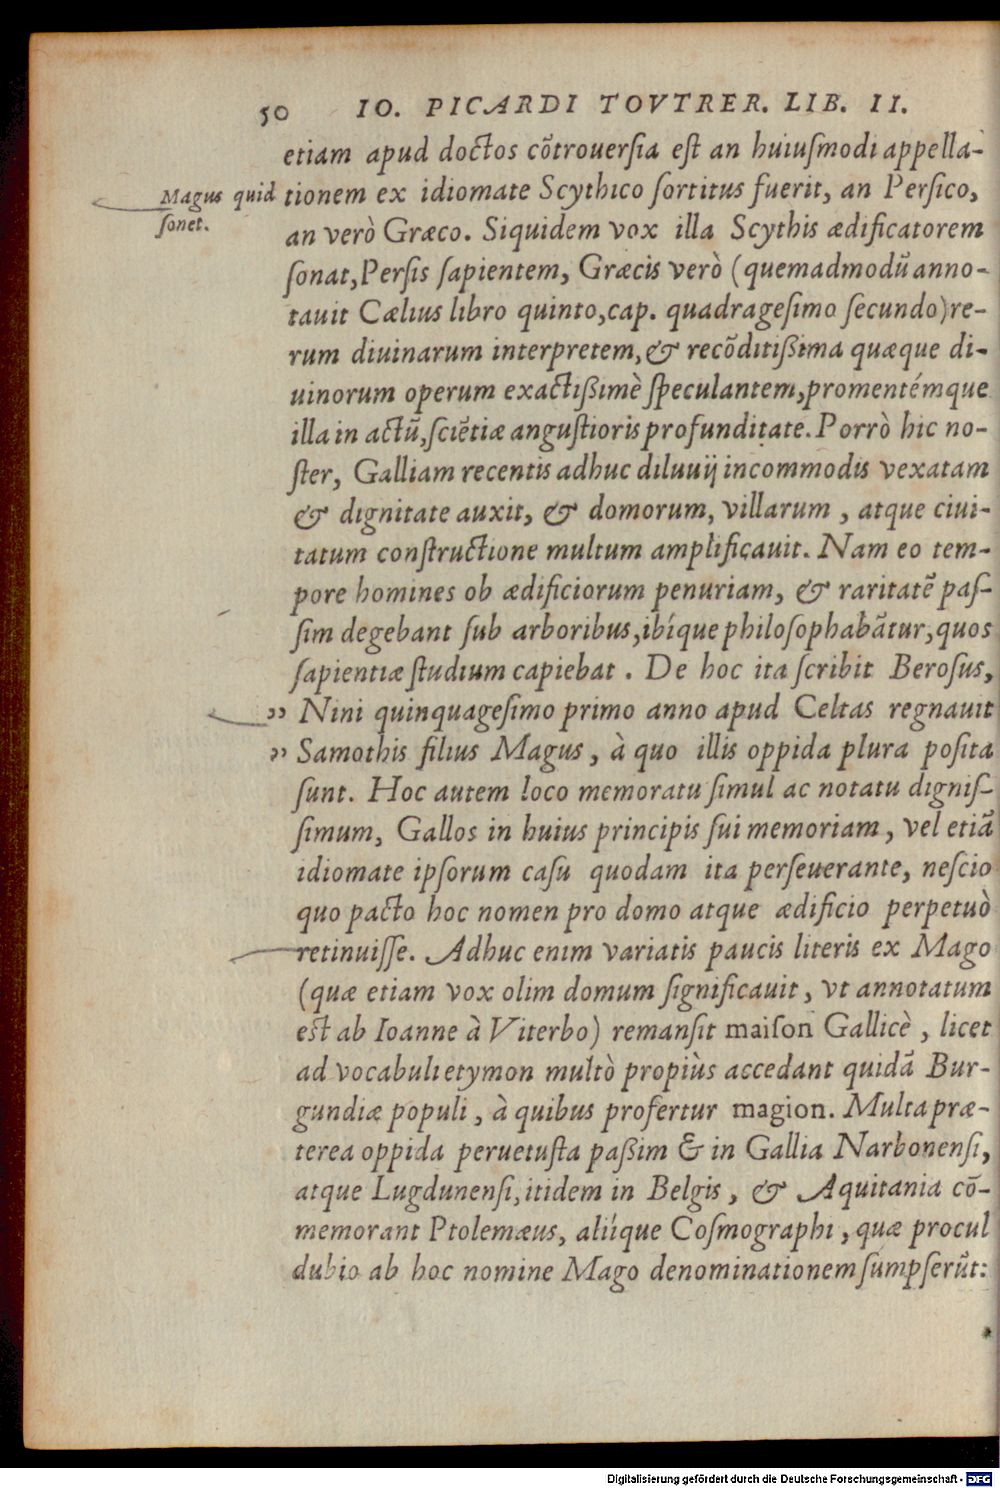 50 IO. PICARDI TOVTRER. LIB. II.
etiam apud doctos cõtrouersia est an huiusmodi appella-
Magus quid
sonet.
tionem ex idiomate Scythico sortitus fuerit, an Persico,
an verò Græco. Siquidem vox illa Scythis ædificatorem
sonat, Persis sapientem, Græcis verò (quemadmodũ anno-
tauit Cælius libro quinto, cap. quadragesimo secundo) re-
rum diuinarum interpretem, & recõditißima quæque di-
uinorum operum exactißimè speculantem, promentémque
illa in actũ, sciẽtiæ angustioris profunditate. Porrò hic no-
ster, Galliam recentis adhuc diluuij incommodis vexatam
& dignitate auxit, & domorum, villarum, atque ciui-
tatum constructione multum amplificauit. Nam eo tem-
pore homines ob ædificiorum penuriam, & raritatẽ pas-
sim degebant sub arboribus, ibíque philosophabãtur, quos
sapientiæ studium capiebat. De hoc ita scribit Berosus,
” Nini quinquagesimo primo anno apud Celtas regnauit
” Samothis filius Magus, à quo illis oppida plura posita
sunt. Hoc autem loco memoratu simul ac notatu dignis-
simum, Gallos in huius principis sui memoriam, vel etiã
idiomate ipsorum casu quodam ita perseuerante, nescio
quo pacto hoc nomen pro domo atque ædificio perpetuò
retinuisse. Adhuc enim variatis paucis literis ex Mago
(quæ etiam vox olim domum significauit, vt annotatum
est ab Ioanne à Viterbo) remansit maison Gallicè, licet
ad vocabuli etymon multò propiùs accedant quidã Bur-
gundiæ populi, à quibus profertur magion. Multa præ-
terea oppida peruetusta paßim & in Gallia Narbonensi,
atque Lugdunensi, itidem in Belgis, & Aquitania cõ-
memorant Ptolemæus, aliíque Cosmographi, quæ procul
dubio ab hoc nomine Mago denominationem sumpserũt:
Digitalisierung gefördert durch die Deutsche Forschungsgemeinschaft - DFG